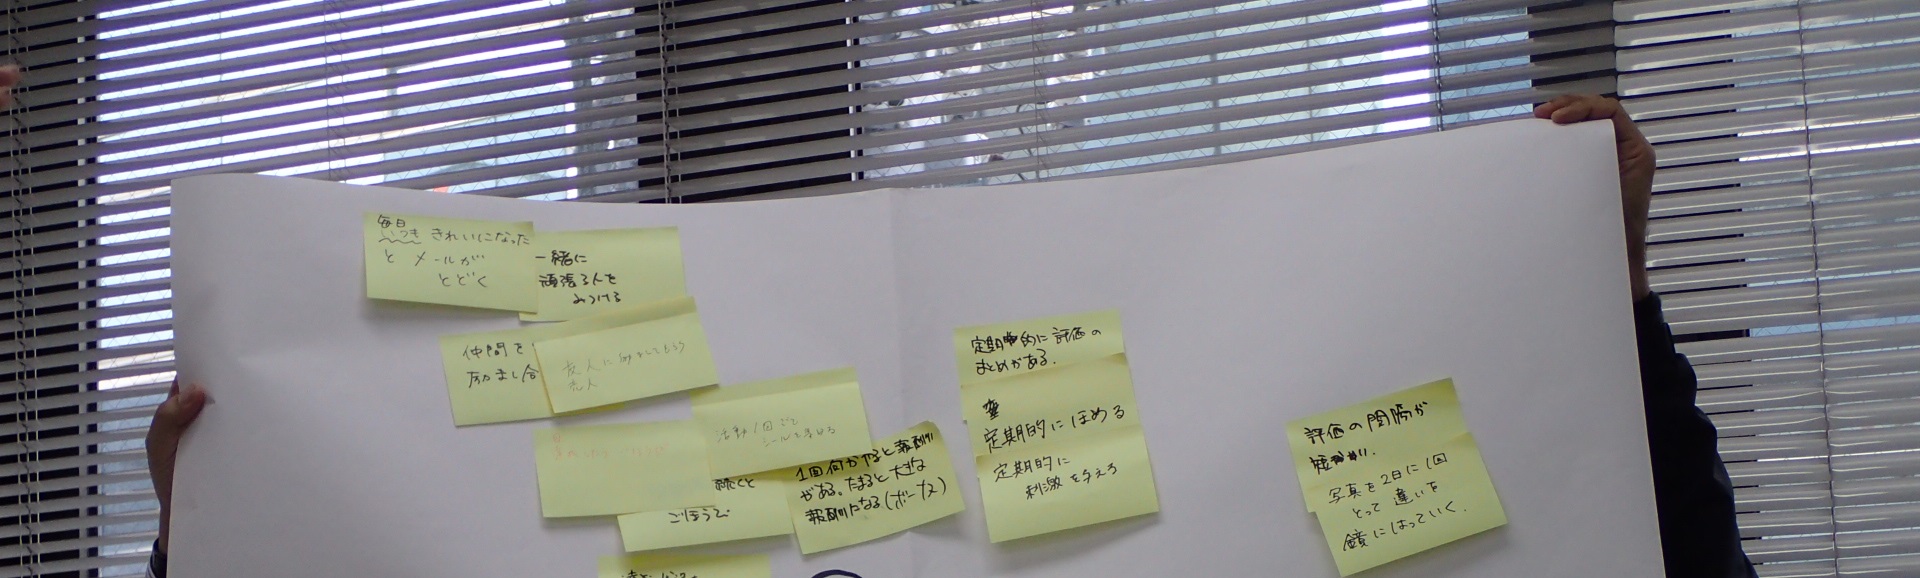 毎日
いつも きれいになった
と メールが
とどく
一緒に
頑張る人を
みつける
仲間を
励まし合
友人に
恋人
活動1回ごと
シールを
続くと
ごほうび
1回何かやると報酬
がある。たまると大きな
報酬になる(ボーナス)
定期的に評価の
まとめがある.
定期的にほめる
定期的に
刺激を与える
評価の間隔が
短かい.
写真を2日に1回
とって 違いを
鏡にはっていく.